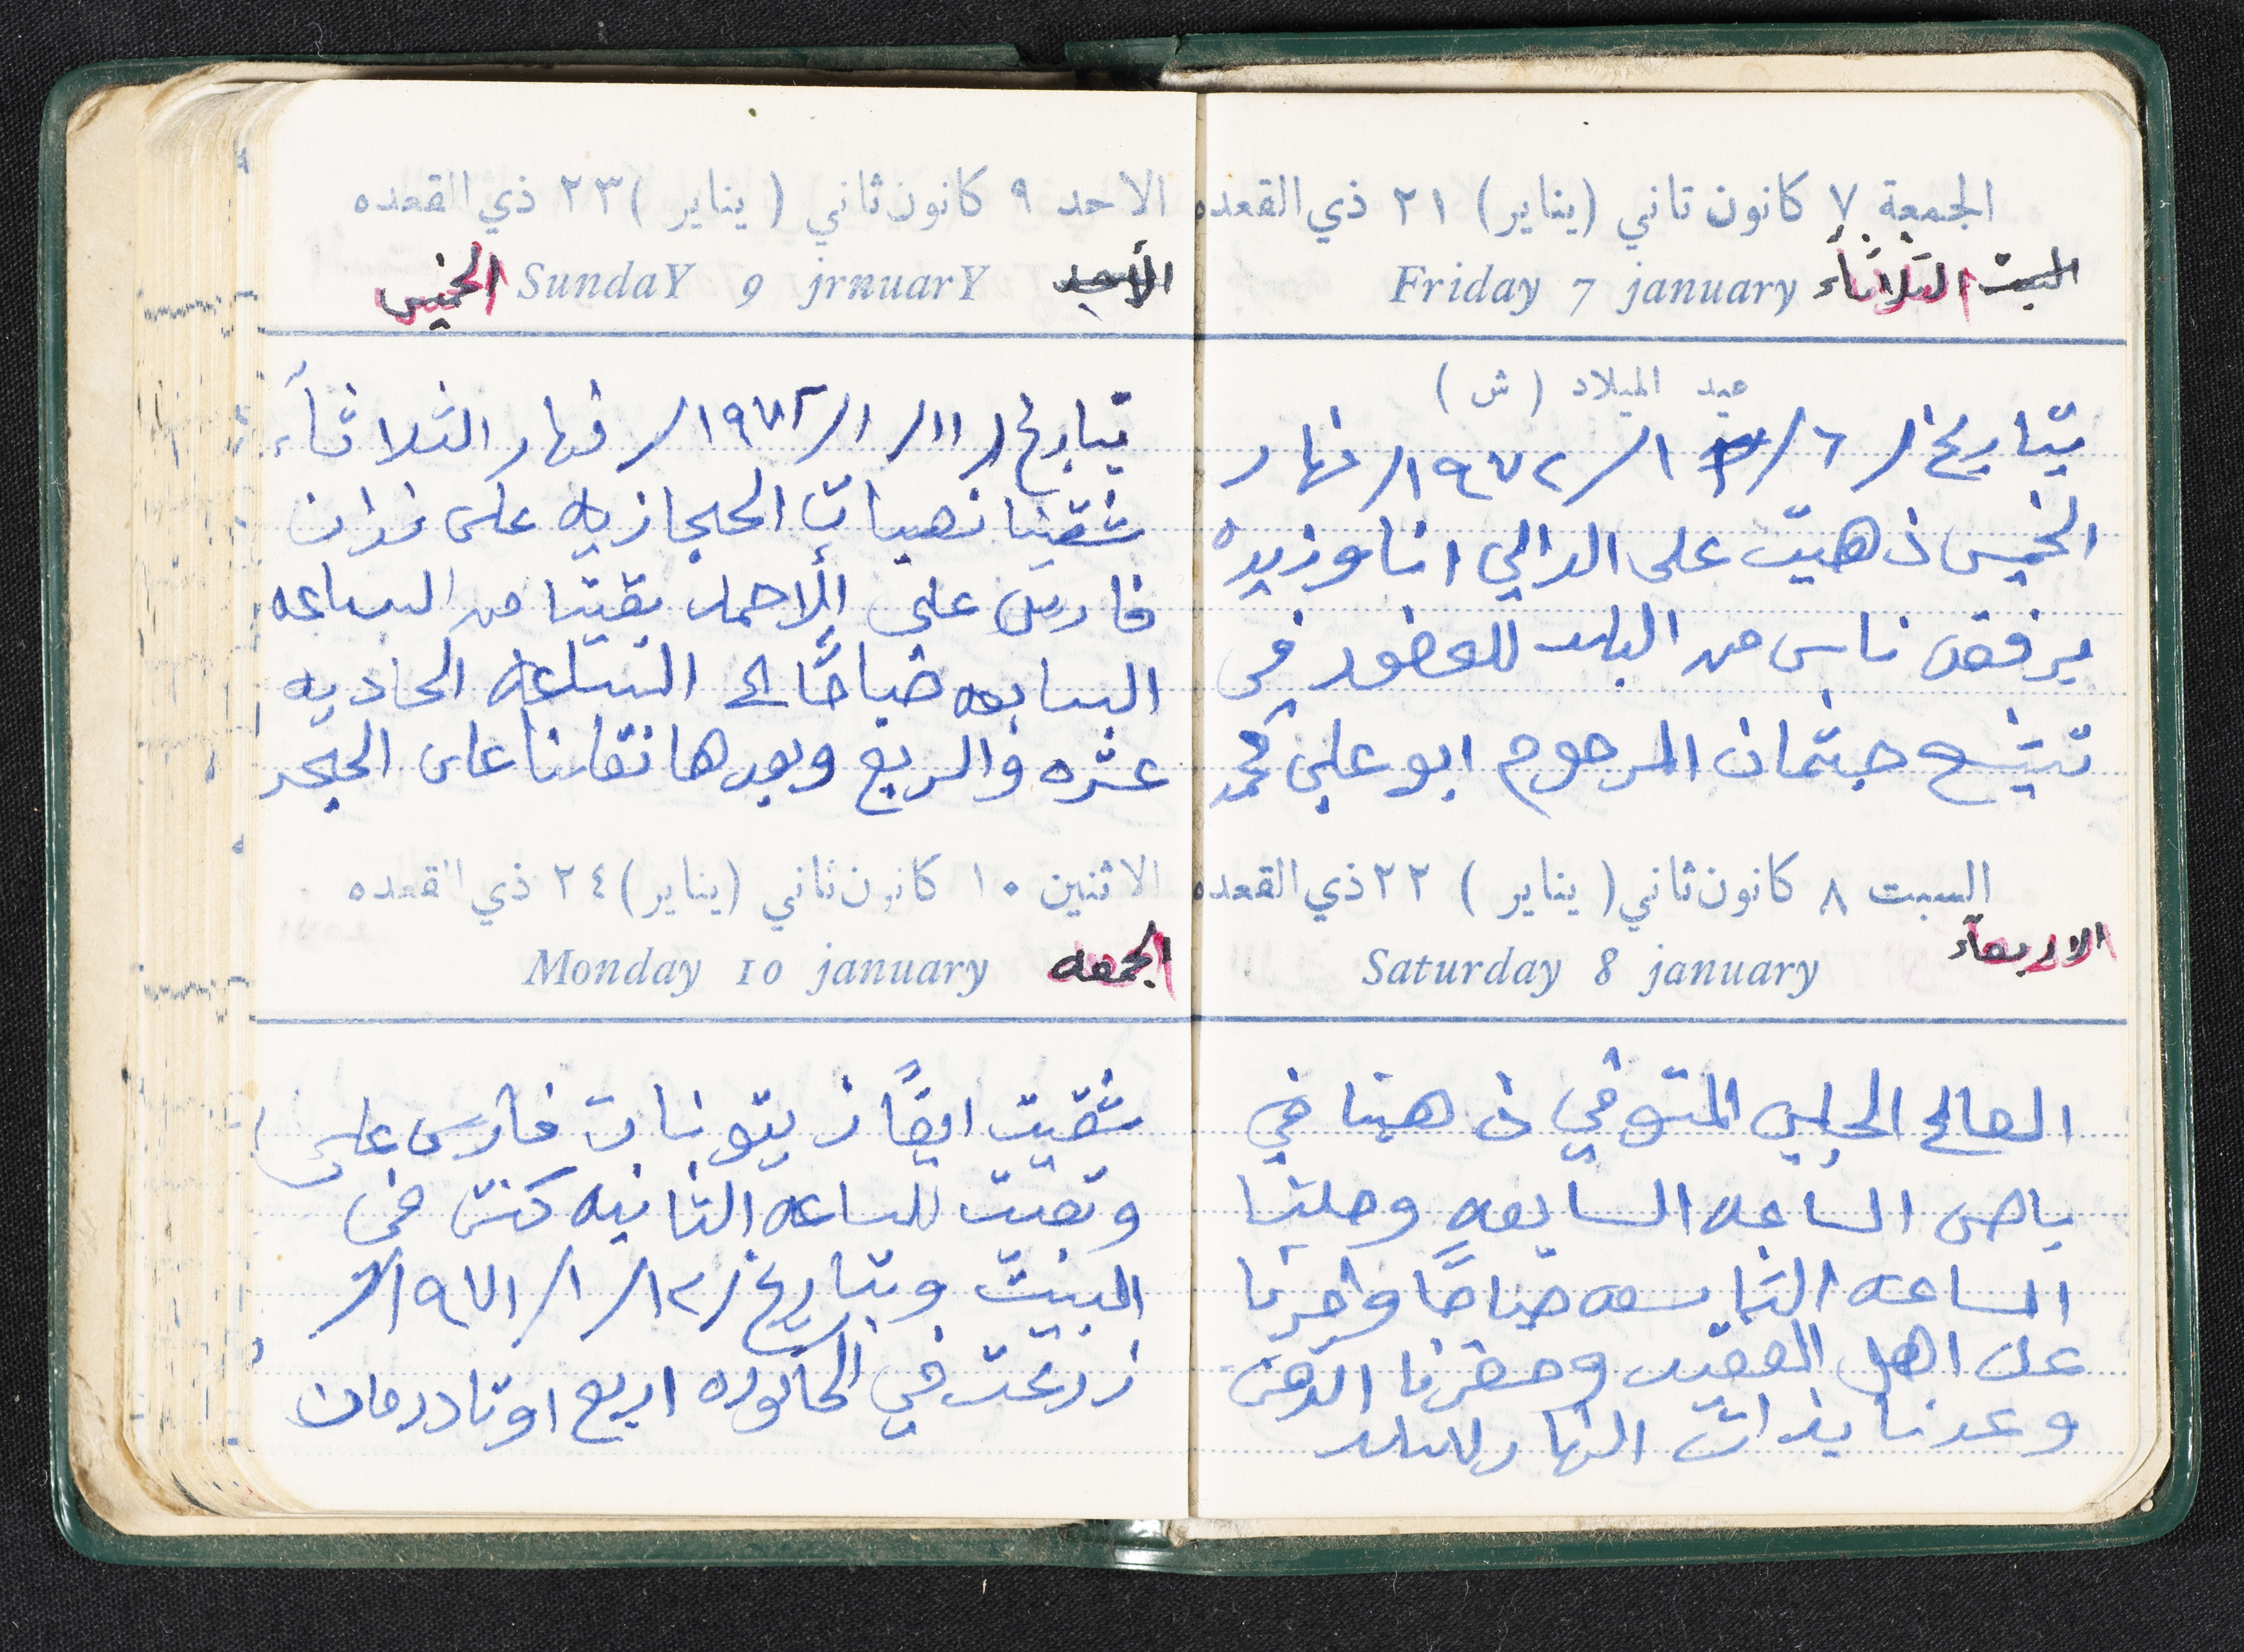 الجمعة ٧ كانون ثاني (يناير) ٢١ ذي القعده
السبت الثلاثآء Friday 7 january
عيد الميلاد (ش)
بتاريخ / ٦ / ١ / ١٩٧٢ / نهار
الخميس ذهبت على الدالي انا وزيد
برفقة ناس من البلد للحضور في
تشيع جثمان المرحوم ابو علي محمد
السبت ٨ كانون ثاني (يناير) ٢٢ ذي القعده
الاربعآء
Saturday 8 january
الصالح الحلبي المتوفي ذهبنا في
باص الساعه السابعه وصلنا
الساعه التاسعه صباحًا وأجرنا
عند اهل الفقيد وحضرنا الدفن
وعدنا بذات النهار للبلد
الاحد ٩ كانون ثاني (يناير) ٢٣ ذي القعده
الأحد SundaY 9 jrnuarY الخميس
بتاريخ / ١١ / ١ / ١٩٧٢ / نهار الثلاثآء
شقينا نصبات الحجازيه على
فارس علي الاحمد بقينا من الساعه
السابعه صباحًا الى الساعه الحاديه
عشره والربع وبعدها نقلنا على الحجر
الاثنين ١٠ كانون ثاني (يناير) ٢٤ ذي القعده
الجمعه Monday 10 january
شقيت ايضًا زيتونات فارس علي
وبقيت للساعه الثانيه كنت في
البيت وبتاريخ / ١٢ / ١ / ١٩٧١ /
زرعت في الحاكوره اربع اوتاد رمان